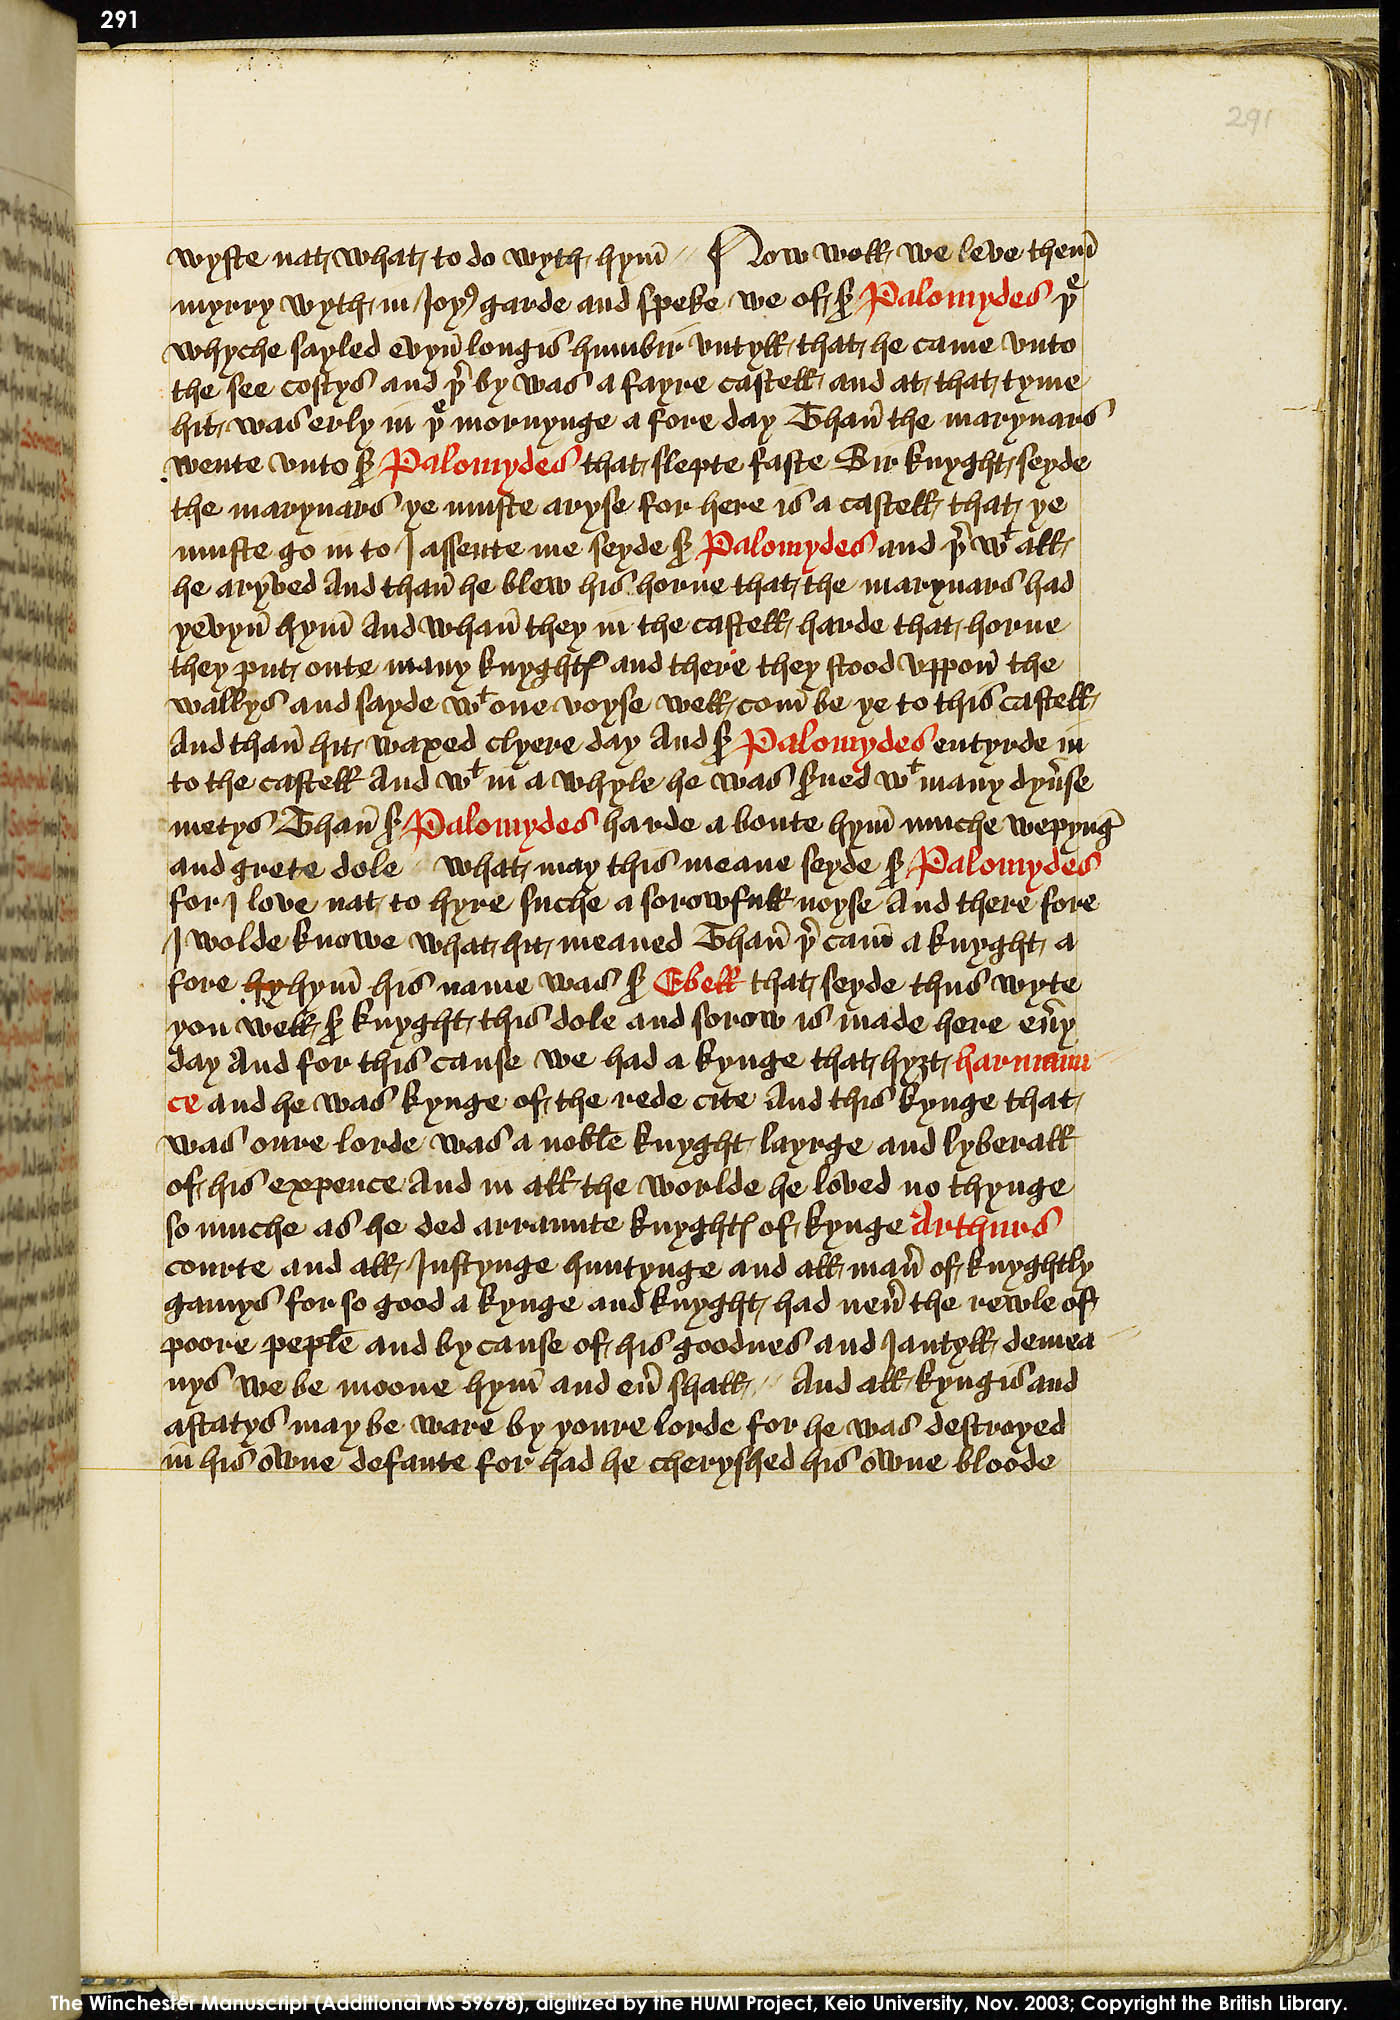 291
291
wyste nat what to do wyth hym̄ // Now woll we leve them̄
myrry wyth in Joyꝰ garde and speke we of sͬ Palomydes þͤ
whyche sayled ēvyn̄ longis humbir vntyll that he came vnto
the see costys and þͬ by was a fayre castell and at that tyme
hit was erly in þͤ mornynge a fore day Than̄ the marynars
wente vnto sͬ Palomydes that slepte faste Sir knyght seyde
the marynars ye muste aryse for here is a castell that ye
muste go in to I assente me seyde sͬ Palomydes and þͬ wᵗ all
he aryved And than̄ he blew his horne that the marynars had
yēvyn̄ hym̄ And whan̄ they in the castell harde that horne
they put oute many knyghtꝭ and there they stood vppon̄ the
wallys and sayde wᵗ one voyse well com̄ be ye to this castell
And than̄ hit waxed clyere day And sͬ Palomydes entyrde in
to the castell And wᵗ in a whyle he was s̄ued wᵗ many dyv̄se
metys Than̄ sͬ Palomydes harde a boute hym̄ muche wepynḡ
and grete dole // what may this meane seyde sͬ Palomydes
for I love nat to hyre suche a sorowfull noyse And there fore
I wolde knowe what hit meaned Than̄ þͬ cam̄ a knyght a
fore hy hym̄ his name was sͬ Ebell that seyde thus wyte
you well sͬ knyght this dole and sorow is made here eūy
day And for this cause we had a kynge that hyȝt harmaun
ce and he was kynge of the rede cite And this kynge that
was oure lorde was a noble knyght layrge and lyberall
of his expence And in all the worlde he loved no thynge
so muche as he ded arraunte knyghtꝭ of kynge Arthurs
courte and all Justynge huntynge and all man̄ of knyghtly
gamys for so good a kynge and knyght had neū the rewle of
poore peple and by cause of his goodnes and Jantyll demea
nys we be moone hym̄ and eū shall // And all kyngis and
astatys may be ware by youre lorde for he was destroyed
in his owne defaute for had he cheryshed his owne bloode
The Winchester Manuscript (Additional MS 59678), digitized by the HUMI Project, Keio University, Nov. 2003; Copyright the British Library.